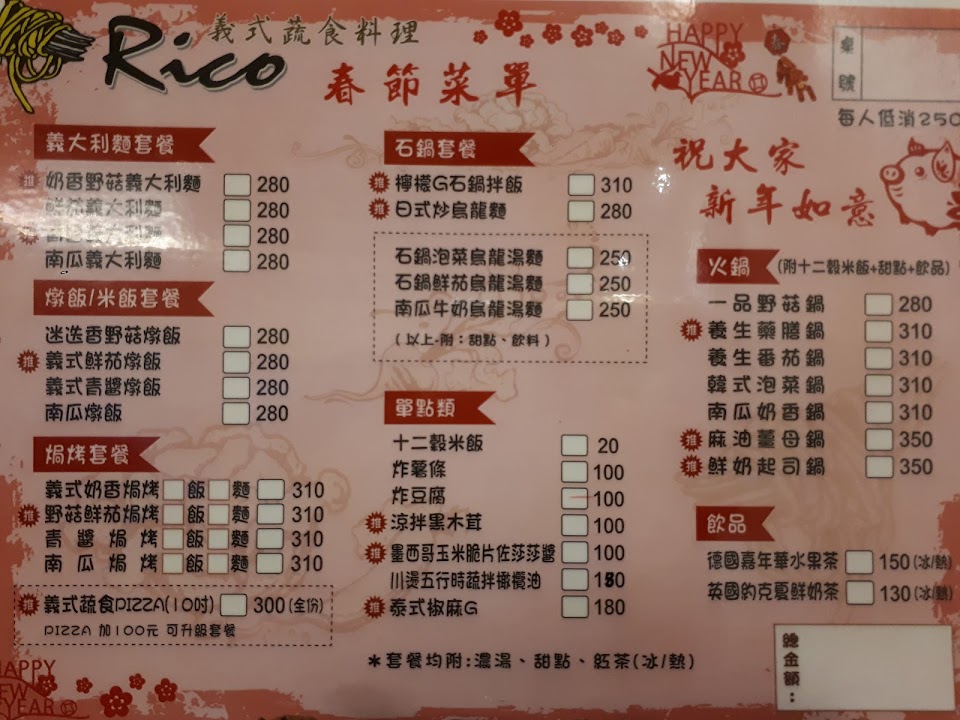 Rico
義式蔬食料理
春節菜單
HAPPY
NEW
YEAR
桌號
每人低消250
祝大家
新年如意
義大利麵套餐
推 奶香野菇義大利麵 280
鮮茄義大利麵 280
義大利麵 280
南瓜義大利麵 280
燉飯/米飯套餐
迷迭香野菇燉飯 280
推 義式鮮茄燉飯 280
義式青醬燉飯 280
南瓜燉飯 280
焗烤套餐
義式奶香焗烤 飯 麵 310
推 野菇鮮茄焗烤 飯 麵 310
青醬焗烤 飯 麵 310
南瓜焗烤 飯 麵 310
推 義式蔬食PIZZA(10吋) 300(全份)
PIZZA 加100元 可升級套餐
石鍋套餐
推 檸檬G石鍋拌飯 310
推 日式炒烏龍麵 280
石鍋泡菜烏龍湯麵 250
石鍋鮮茄烏龍湯麵 250
南瓜牛奶烏龍湯麵 250
(以上-附：甜點、飲料)
單點類
十二穀米飯 20
炸薯條 100
炸豆腐 100
推 涼拌黑木茸 100
推 墨西哥玉米脆片佐莎莎醬 100
川燙五行時蔬拌橄欖油
推 泰式椒麻G 180
＊套餐均附:濃湯、甜點、紅茶(冰/熱)
火鍋 (附十二穀米飯+甜點+飲品)
一品野菇鍋 280
推 養生藥膳鍋 310
養生番茄鍋 310
韓式泡菜鍋 310
南瓜奶香鍋 310
推 麻油薑母鍋 350
推 鮮奶起司鍋 350
飲品
德國嘉年華水果茶 150(冰/熱)
英國約克夏鮮奶茶 130(冰/熱)
總金額：
HAPPY
NEW
YEAR